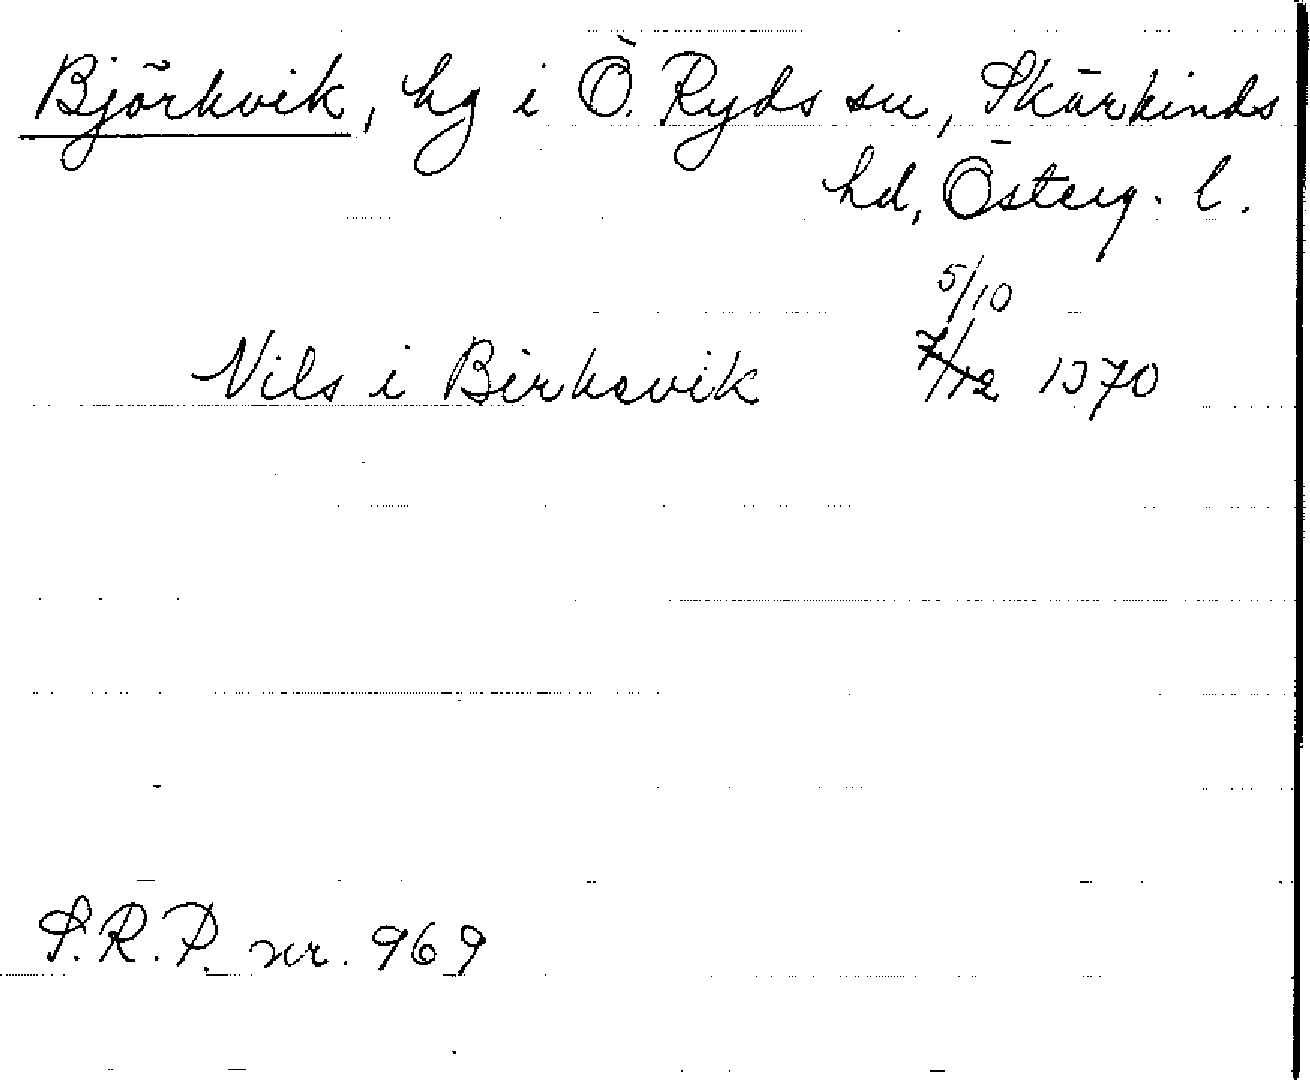 Björkvik, hg i Ö. Ryds sn, Skärkinds
hd, Österg. l.
5/10
Nils i Birkavik 7/12 1370
S.R.P. nr. 969